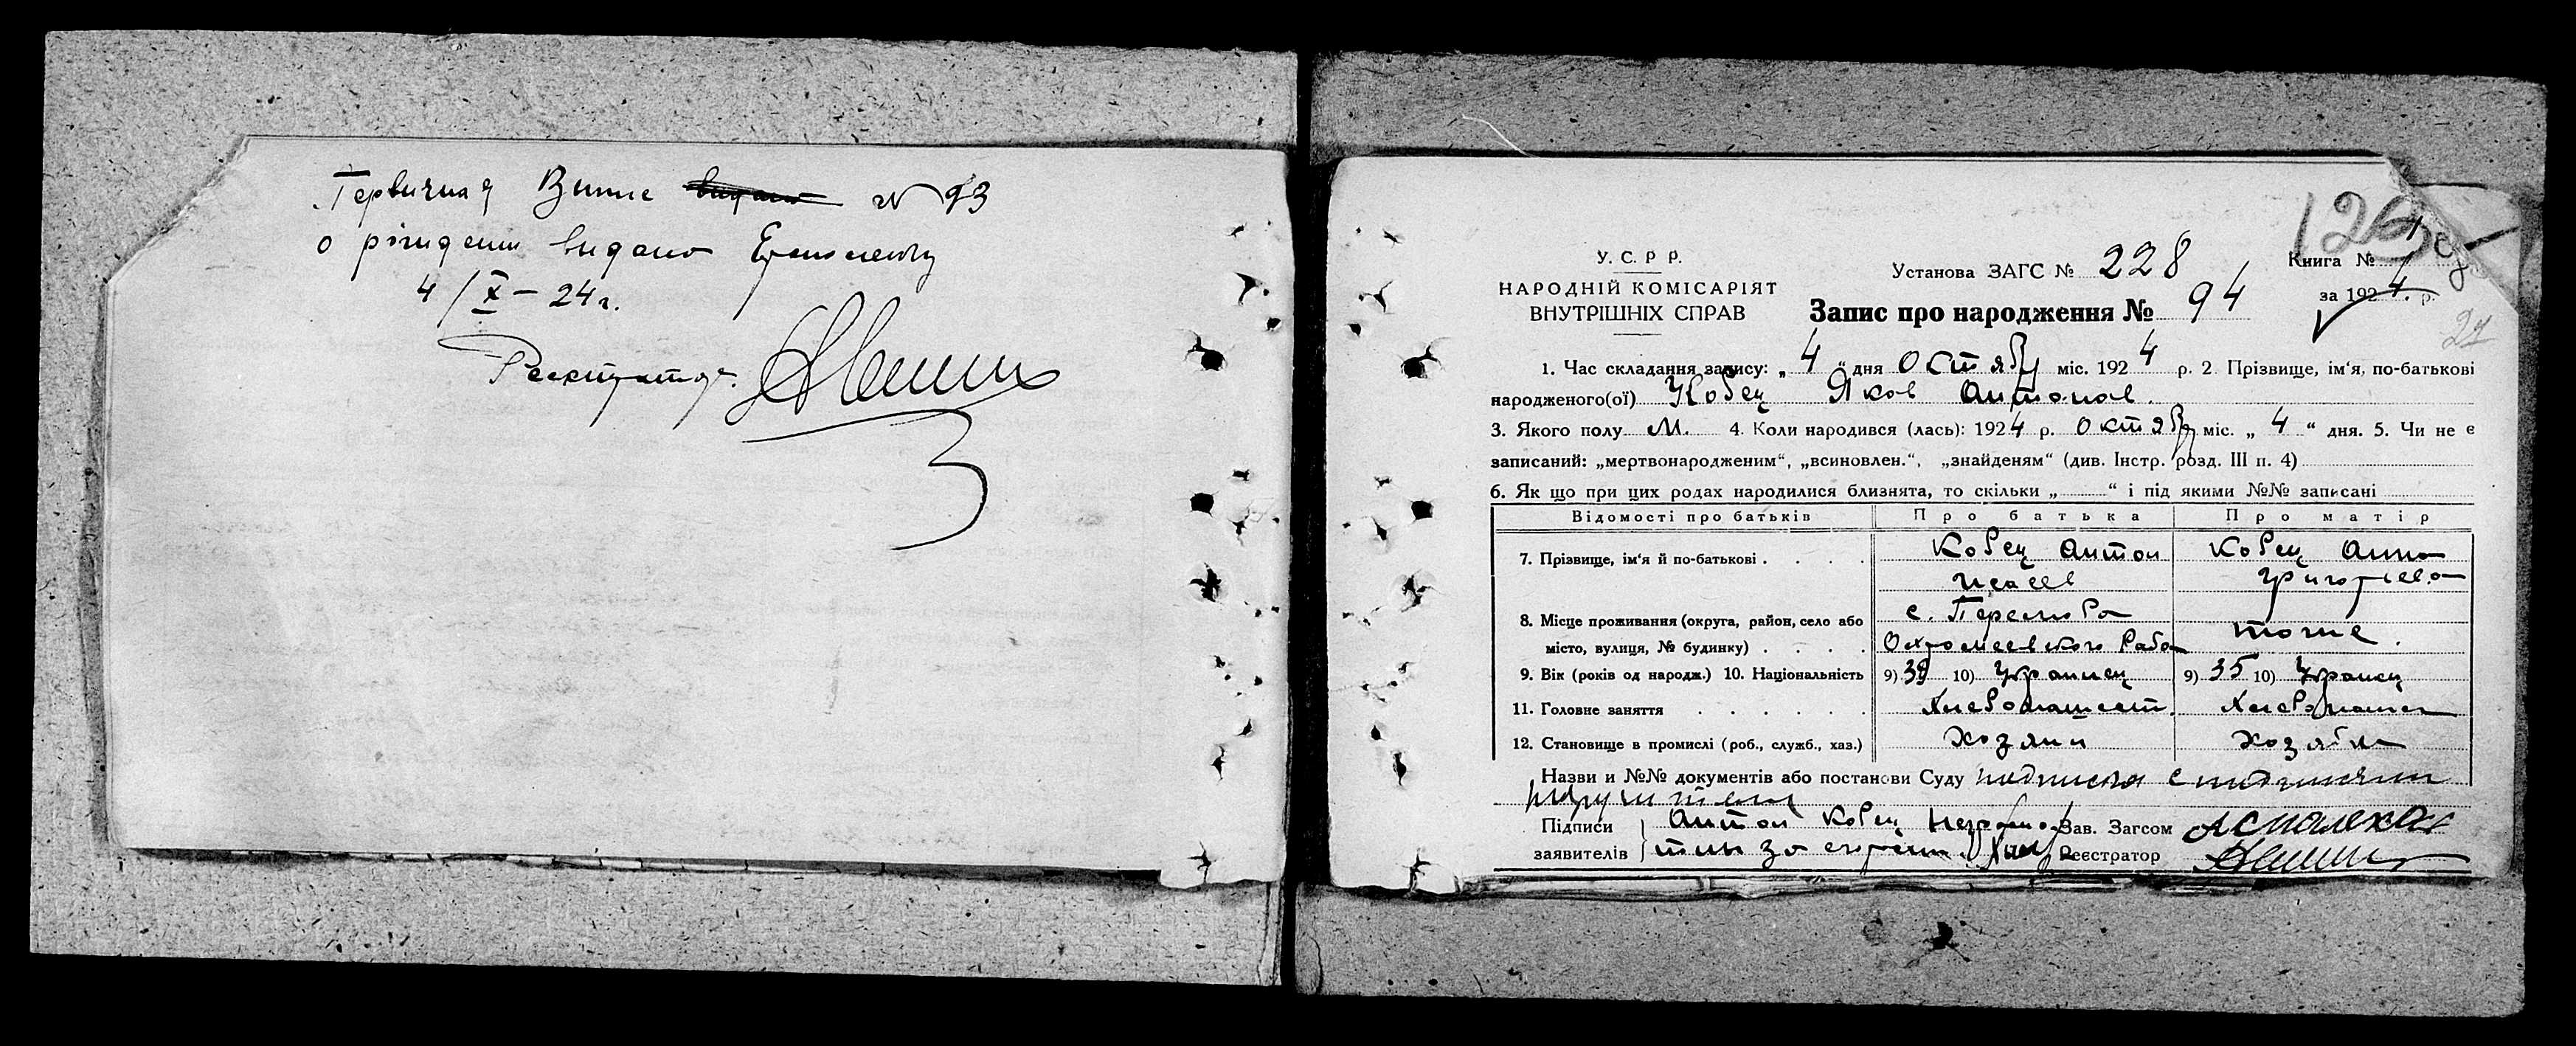 Первичная Випис видано № 93
о рождении видано
4/X – 24 г.
Реєстратор.
У. С. Р. Р.
НАРОДНІЙ КОМІСАРІЯТ
ВНУТРІШНІХ СПРАВ
Установа ЗАГС № 228
Книга № 1
за 1924 р.
Запис про народження № 94
1. Час складання запису: „ 4 “ дня Октябр міс. 1924 р. 2. Прізвище, ім‘я, по-батькові
народженого(ої) Кобец Яков Антонов.
3. Якого полу М. 4. Коли народився (лась): 1924 р. Октябр міс. „ 4 “ дня. 5. Чи не є
записаний: „мертвонародженим“, „всиновлен.“, „знайденям“ (див. Інстр. розд. III п. 4)
6. Як що при цих родах народилися близнята, то скільки „ “ і під якими №№ записані
Відомості про батьків Про батька Про матір
7. Прізвище, ім‘я й по-батькові . . . . Кобец Антон Кобец Анна
Исаев Григорьева
8. Місце проживання (округа, район, село або с. Перелюба
місто, вулиця, № будинку) . . . . Охромеевского Района тоже.
9. Вік (років од народж.) 10. Національність 9) 39 10) Украинец 9) 35 10) Украинец
11. Головне заняття . . . . . . Хлебопашест. Хлебопашест
12. Становище в промислі (роб., служб., хаз.) хозяин хозяйка
Назви и №№ документів або постанови Суду подписка с
Підписи Антон Кобец Неграмот Зав. Загсом
заявителів ный за него Реєстратор